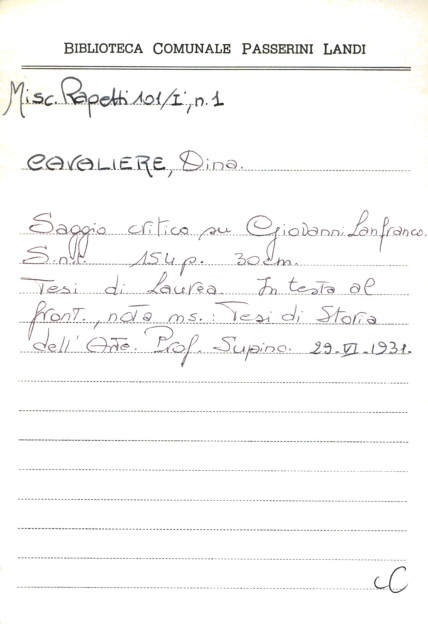 BIBLIOTECA COMUNALE PASSERINI LANDI
Misc. Rapetti 101/I, n. 1
CAVALIERE, Dina.
Saggio critico su Giovanni Lanfranco.
S.n.t. 154 p. 30 cm.
Tesi di Laurea. In testa al
front., nota ms.: Tesi di Storia
dell'Arte. Prof. Supino. 29.VI.1931.